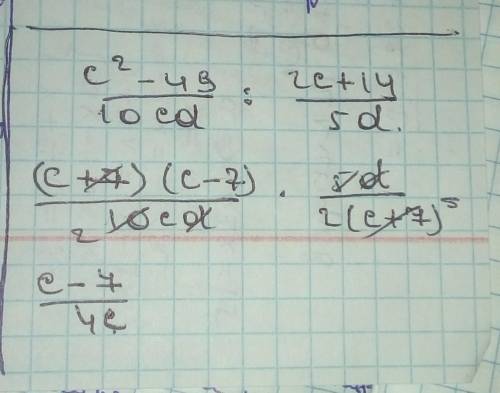 c² - 49 / 10cd : 2c + 14 / 5d.
(c + 7) (c - 7) / 2 10cd · 5d / 2(c + 7) =
c - 7 / 4c